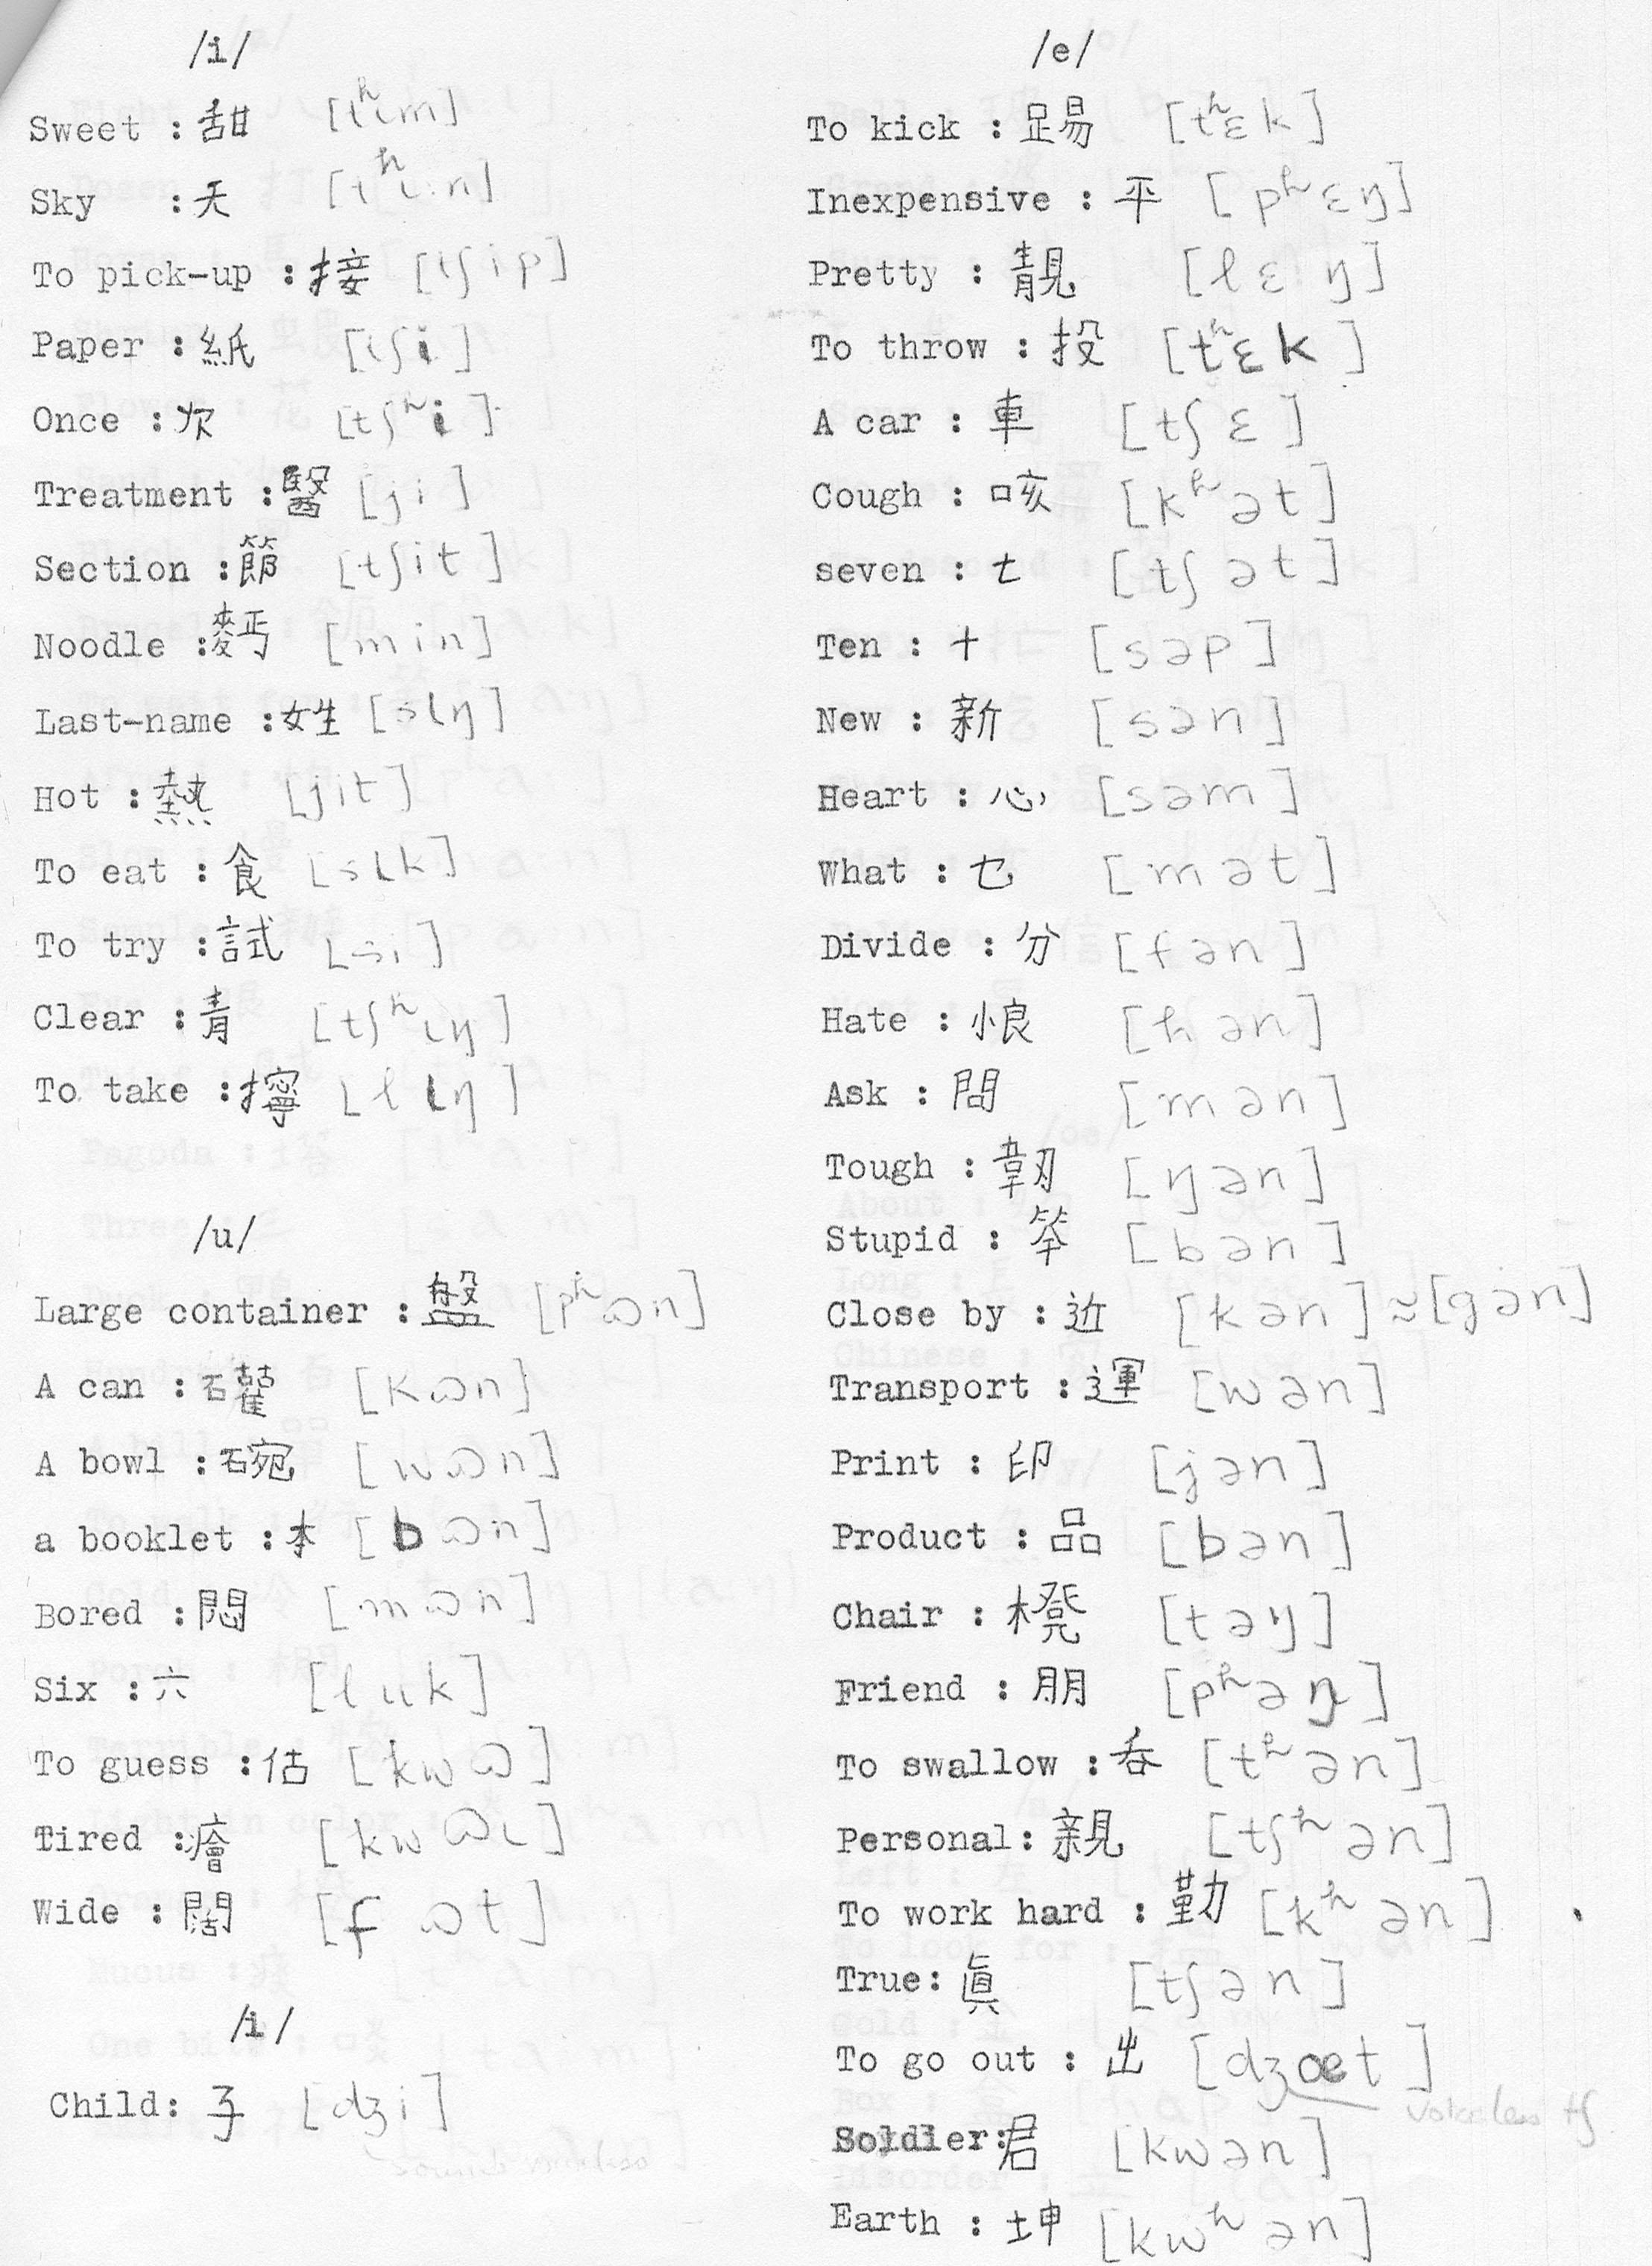 /i/
Sweet : 甜 [tʰɩm]
Sky : 天 [tʰɩn]
To pick-up : 接 [tʃip]
Paper : 紙 [tʃi]
Once : 次 [tʃʰi]
Treatment : 醫 [ji]
Section : 節 [tʃit]
Noodle : 麪 [min]
Last-name : 姓 [sɩŋ]
Hot : 熱 [jit]
To eat : 食 [sɩk]
To try : 試 [si]
Clear : 青 [tʃʰɩŋ]
To take : 擰 [lɩŋ]
/u/
Large container : 盤 [pʰɷn]
A can : [kɷn]
A bowl : 碗 [wɷn]
a booklet : 本 [bɷn]
Bored : 悶 [mɷn]
Six : 六 [luk]
To guess : 估 [kwɷ]
Tired : 癐 [kwɷɩ]
Wide : 闊 [fɷt]
/i/
Child: 子 [dʒi]
/e/
To kick : 踢 [tʰɛk]
Inexpensive : 平 [pʰɛŋ]
Pretty : 靚 [lɛŋ]
To throw : 投 [tʰɛk]
A car : 車 [tʃɛ]
Cough : 咳 [kʰət]
seven : 七 [tʃət]
Ten : 十 [səp]
New : 新 [sən]
Heart : 心 [səm]
What : 乜 [mət]
Divide : 分 [fən]
Hate : 恨 [hən]
Ask : 問 [mən]
Tough : 韌 [ŋən]
Stupid : 笨 [bən]
Close by : 近 [kən] ≈ [gən]
Transport : 運 [wən]
Print : 印 [jən]
Product : 品 [bən]
Chair : 櫈 [təŋ]
Friend : 朋 [pʰəŋ]
To swallow : 吞 [tʰən]
Personal: 親 [tʃʰən]
To work hard : 勤 [kʰən]
True: 眞 [tʃən]
To go out : 出 [dʒœt]
voiceless tʃ
Soldier: 君 [kwən]
Earth : 坤 [kwʰən]